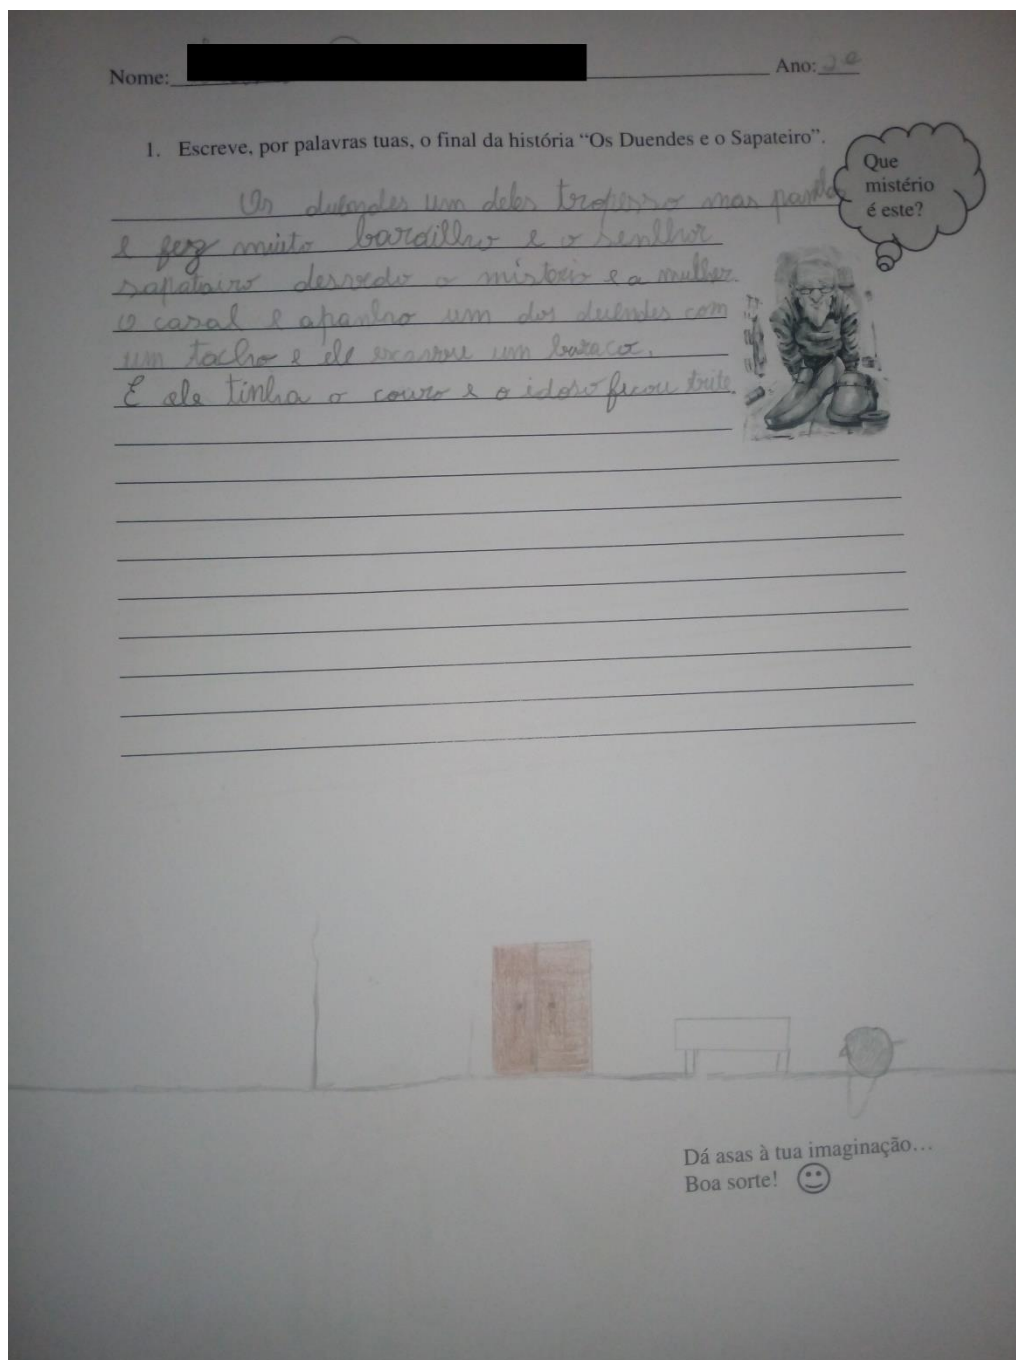 Nome: Ano: 2º
1. Escreve, por palavras tuas, o final da história “Os Duendes e o Sapateiro”.
Que
mistério
é este?
Os duendes um deles tropesso mas
e fez muito bardilho e o senlhor
sapatairo desvedo o misterio e a mulher.
O casal e apanho um dos duendes com
um tacho e ele um baraco.
E ele tinha o couro e o idoso ficou trite.
Dá asas à tua imaginação…
Boa sorte!